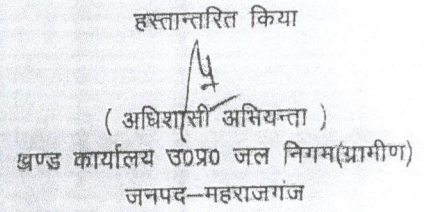 हस्तान्तरित किया
( अधिशासी अभियन्ता )
खण्ड कार्यालय उ0प्र0 जल निगम(ग्रामीण)
जनपद–महराजगंज